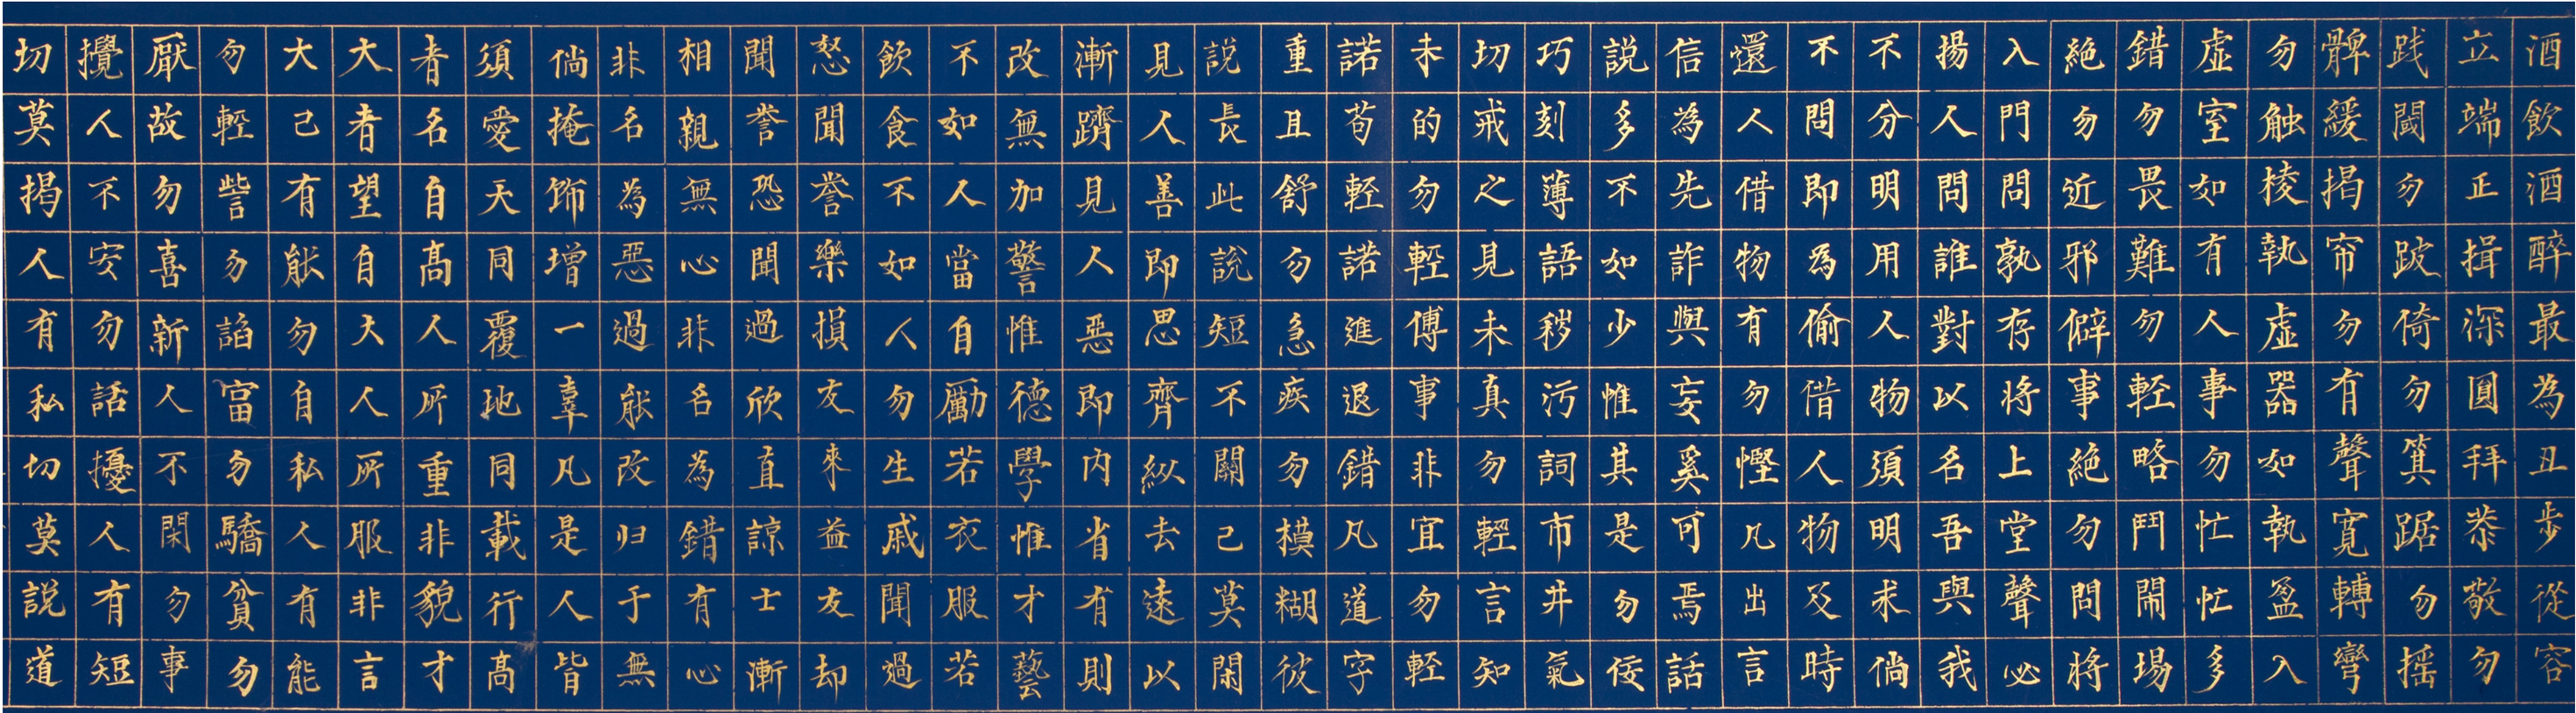 酒飲酒醉最為丑步從容
立端正揖深圓拜恭敬勿
践閾勿跛倚勿箕踞勿摇
髀緩揭帘勿有聲寬轉彎
勿触棱執虛器如執盈入
虛室如有人事勿忙忙多
錯勿畏難勿輕略鬥鬧場
絕勿近邪僻事絕勿問將
入門問孰存將上堂聲必
揚人問誰對以名吾與我
不分明用人物須明求倘
不問即為偷借人物及時
還人借物有勿慳凡出言
信為先詐與妄奚可焉話
說多不如少惟其是勿佞
巧刻薄語穢污詞市井氣
切戒之見未真勿輕言知
未的勿輕傳事非宜勿輕
諾苟輕諾進退錯凡道字
重且舒勿急疾勿模糊彼
說長此說短不關己莫閑
見人善即思齊縱去遠以
漸躋見人惡即內省有則
改無加警惟德學惟才藝
不如人當自勵若衣服若
飲食不如人勿生戚聞過
怒聞譽樂損友來益友却
聞譽恐聞過欣直諒士漸
相親無心非名為錯有心
非名為惡過能改归于無
倘掩飾增一辜凡是人皆
須愛天同覆地同載行高
者名自高人所重非貌才
大者望自大人所服非言
大己有能勿自私人有能
勿輕訾勿諂富勿驕貧勿
厭故勿喜新人不閑勿事
攪人不安勿話擾人有短
切莫揭人有私切莫說道